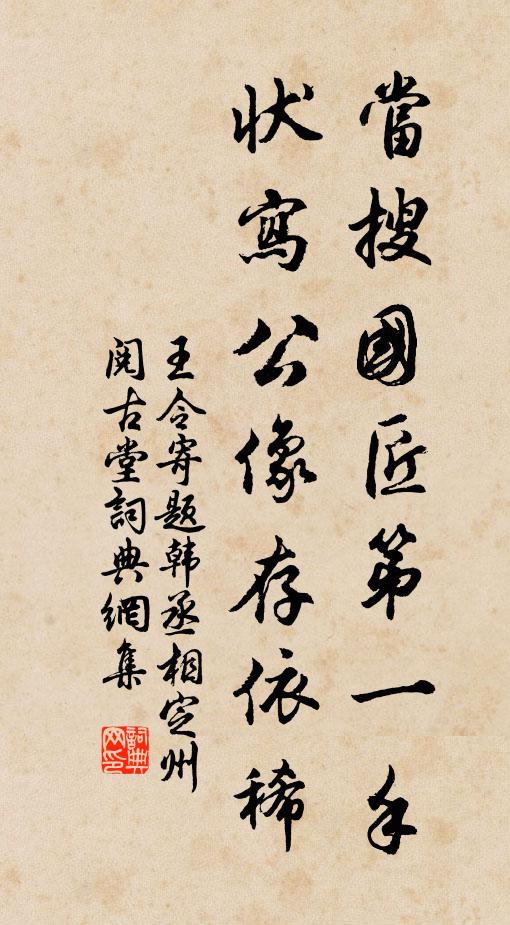 當搜國匠第一手
狀寫公像存依稀
王令寄題韩丞相定州
阅古堂詞典網集
詞典
网印